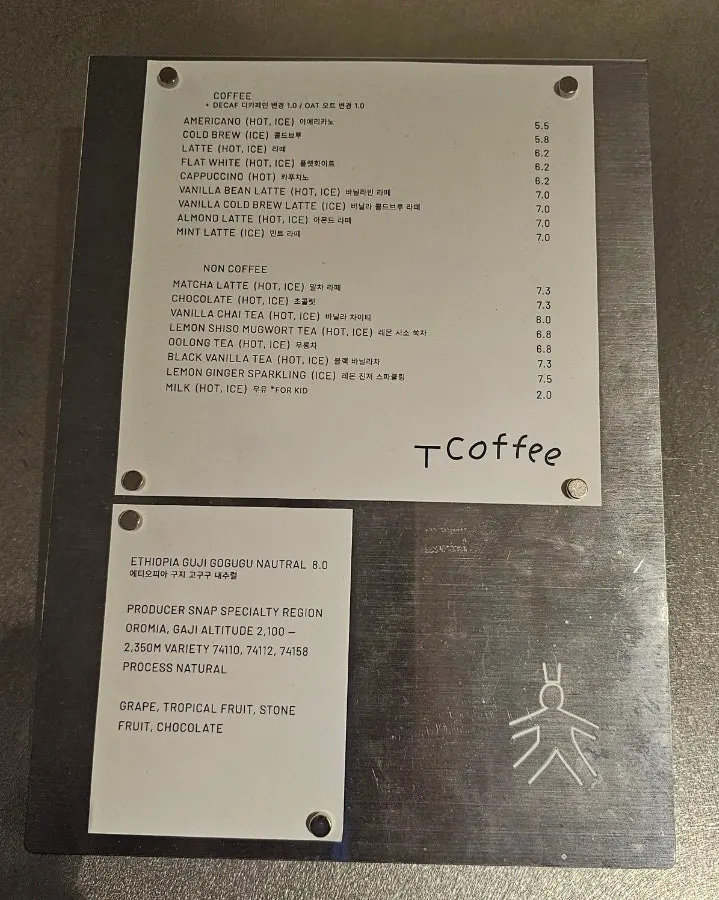 COFFEE
+ DECAF 디카페인 변경 1.0 / OAT 오트 변경 1.0
AMERICANO (HOT, ICE) 아메리카노 5.5
COLD BREW (ICE) 콜드브루 5.8
LATTE (HOT, ICE) 라떼 6.2
FLAT WHITE (HOT, ICE) 플랫화이트 6.2
CAPPUCCINO (HOT) 카푸치노 6.2
VANILLA BEAN LATTE (HOT, ICE) 바닐라빈 라떼 7.0
VANILLA COLD BREW LATTE (ICE) 바닐라 콜드브루 라떼 7.0
ALMOND LATTE (HOT, ICE) 아몬드 라떼 7.0
MINT LATTE (ICE) 민트 라떼 7.0
NON COFFEE
MATCHA LATTE (HOT, ICE) 말차 라떼 7.3
CHOCOLATE (HOT, ICE) 초콜릿 7.3
VANILLA CHAI TEA (HOT, ICE) 바닐라 차이티 8.0
LEMON SHISO MUGWORT TEA (HOT, ICE) 레몬 시소 쑥차 6.8
OOLONG TEA (HOT, ICE) 우롱차 6.8
BLACK VANILLA TEA (HOT, ICE) 블랙 바닐라차 7.3
LEMON GINGER SPARKLING (ICE) 레몬 진저 스파클링 7.5
MILK (HOT, ICE) 우유 *FOR KID 2.0
T Coffee
ETHIOPIA GUJI GOGUGU NAUTRAL 8.0
에티오피아 구지 고구구 내추럴
PRODUCER SNAP SPECIALTY REGION
OROMIA, GAJI ALTITUDE 2,100 –
2,350M VARIETY 74110, 74112, 74158
PROCESS NATURAL
GRAPE, TROPICAL FRUIT, STONE
FRUIT, CHOCOLATE